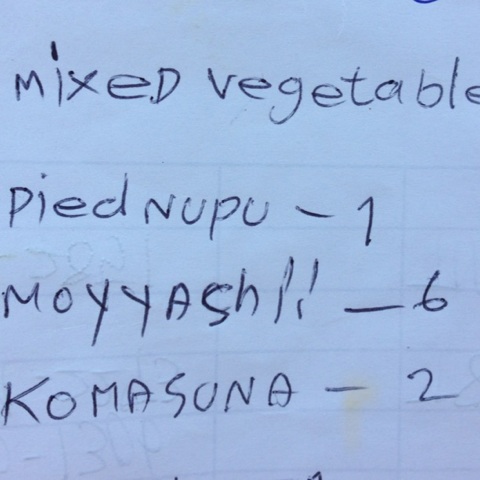 mixeD vegetable
Pied NUPU - 1
MOYYASh!! - 6
KOMASUNA - 2